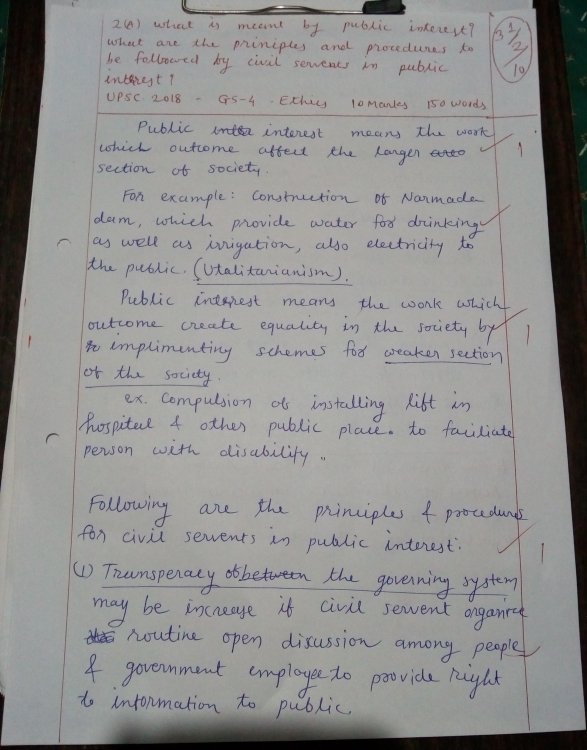 2(A) what is meant by public interest?
what are the principles and procedures to
be followed by civil servents in public
intrest?
UPSC 2018 - GS-4 - Ethics 10 Marks 150 words
3 1/2
10
Public interest means the work
which outcome affect the larger
section of society.
1
For example: Construction of Narmada
dam, which provide water for drinking
as well as irrigation, also electricity to
the public. (Utalitarianism).
Public interest means the work which
outcome create equality in the society by
implimenting schemes for weaker section
1
of the society.
ex. Compulsion of installing lift in
hospital & other public place. to faciliate
person with disability.
Following are the principles & procedures
for civil servents in public interest:
1
(1) Transperacy of between the governing system
may be increase if civil servent organize
routine open discussion among people
& government employee to provide right
to information to public.